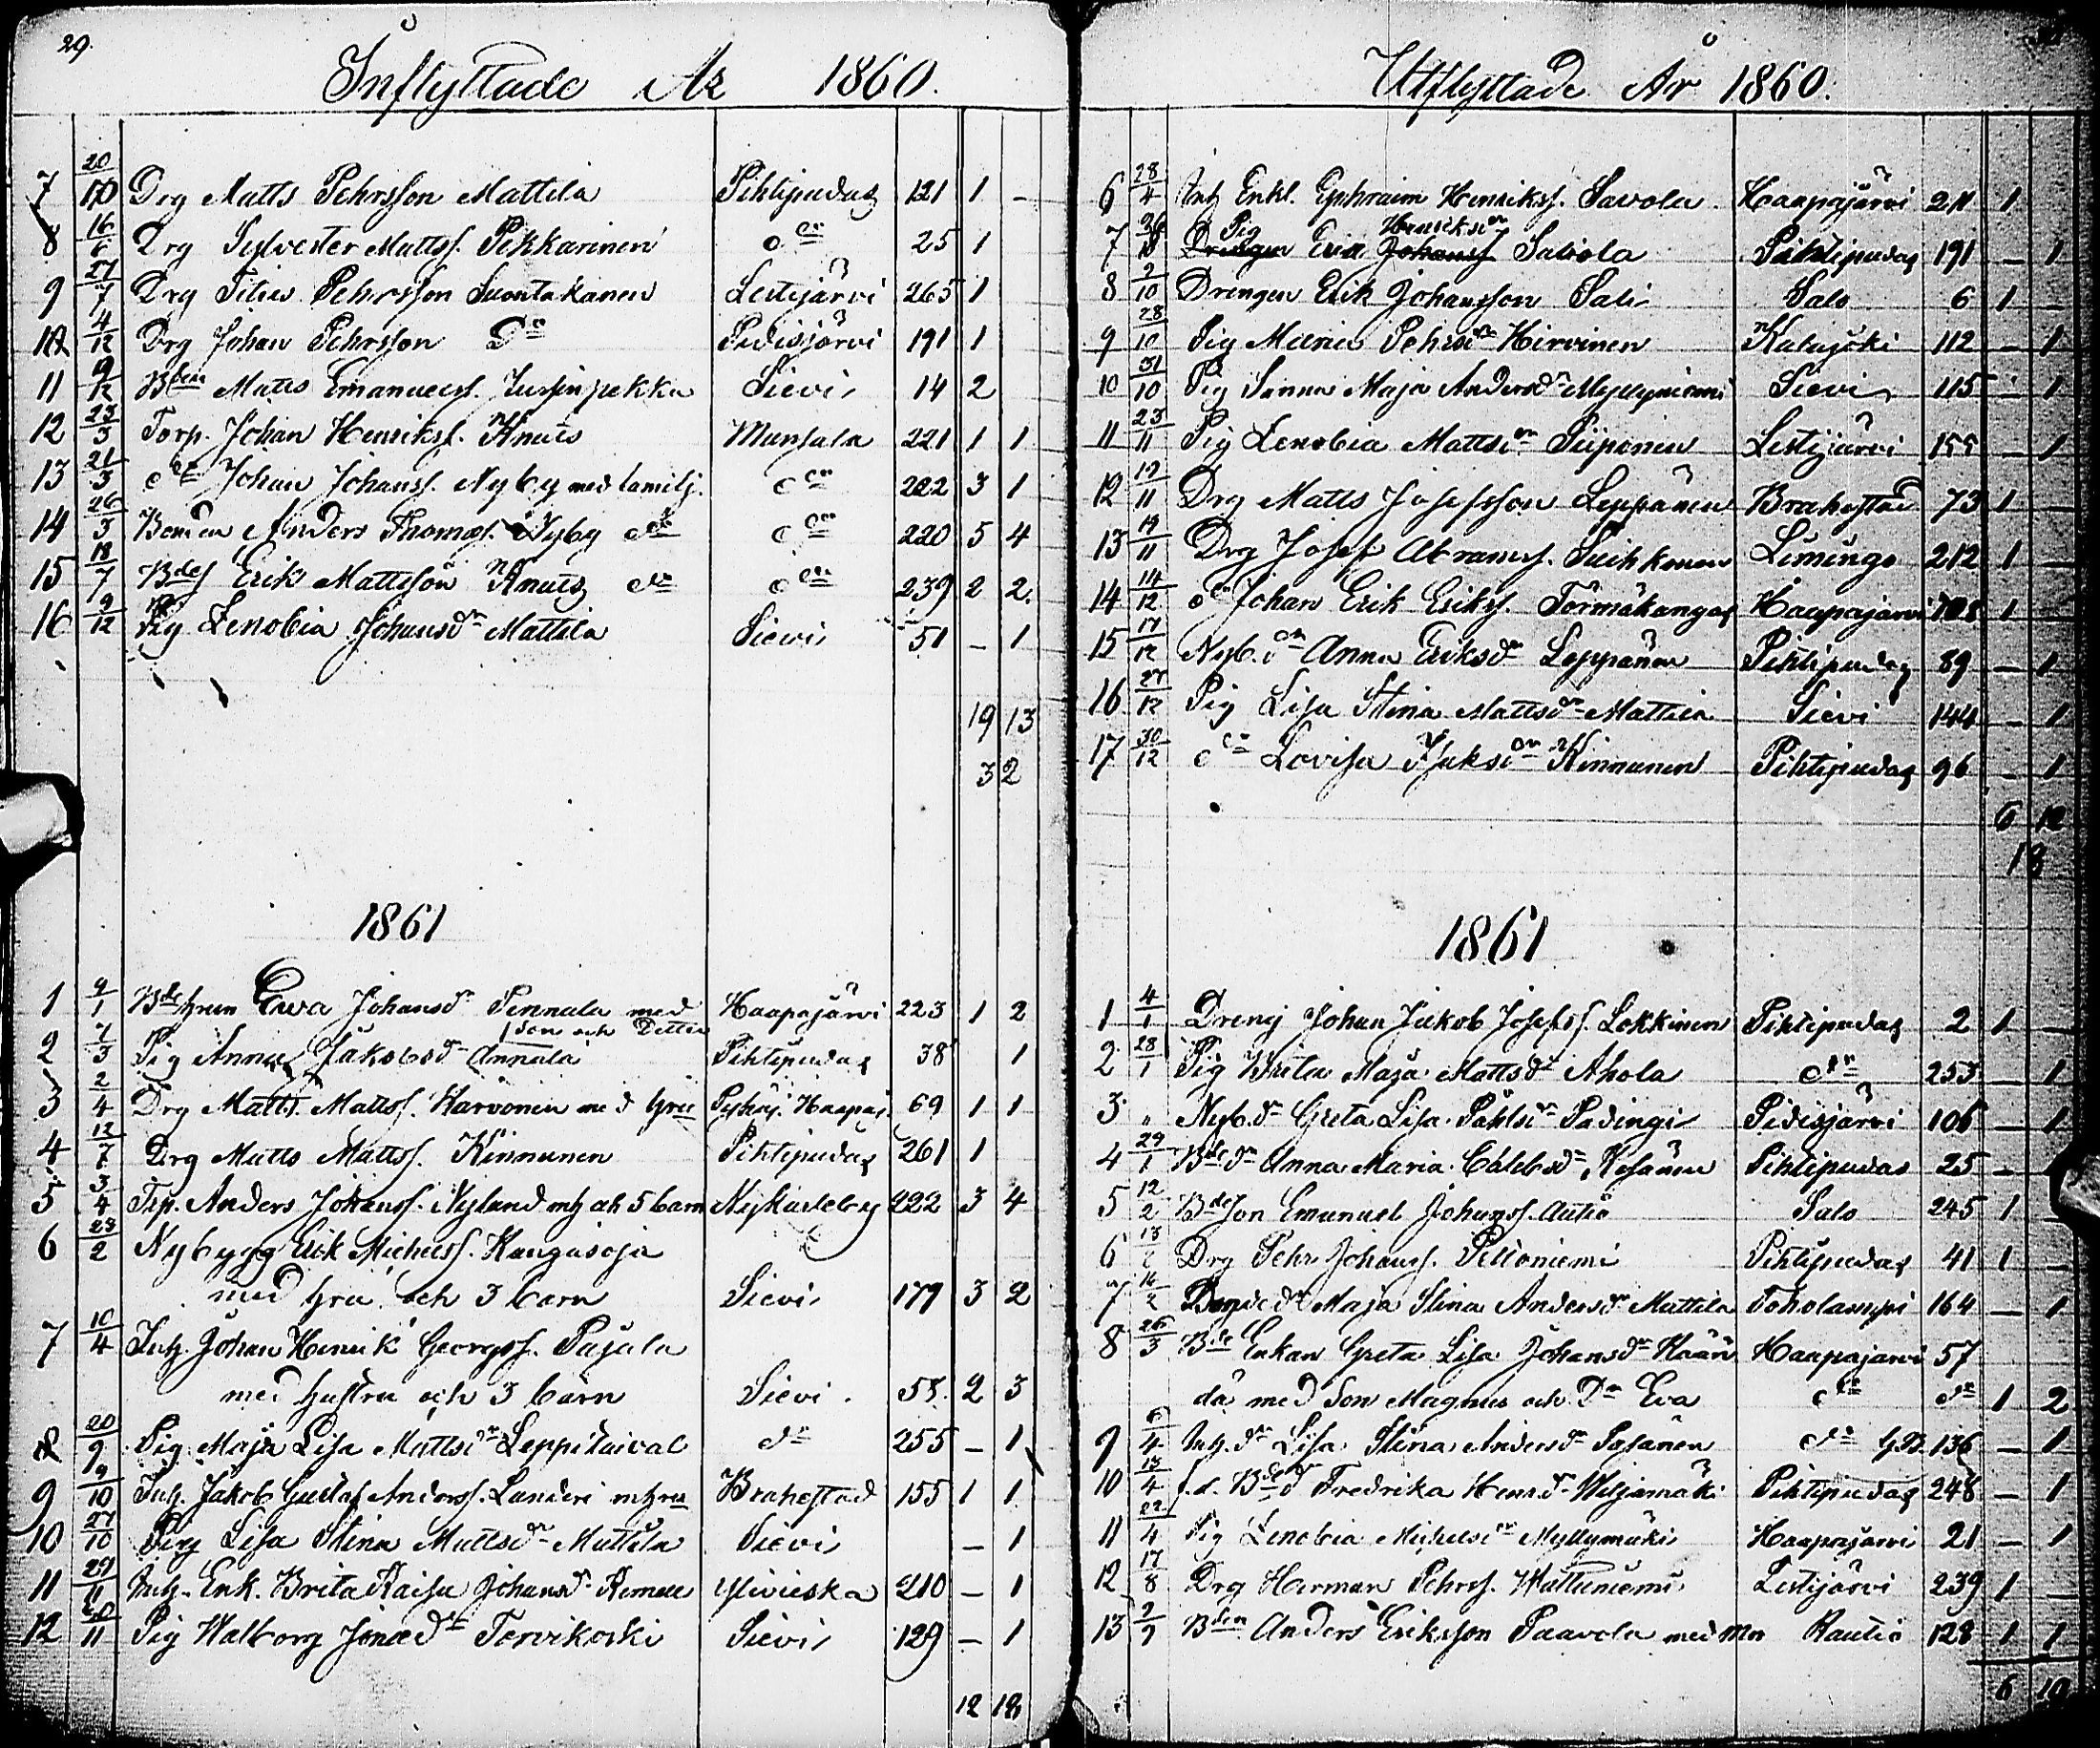 29.
Inflyttade År 1860.
7 20/10 Drg Matts Pehrsson Mattila Pihtipudas 121 1 -
8 16/6 Drg Sylvester Mattss. Pekkarinen do 25 1
9 27/7 Drg Titus Pehrsson Suontakanen Lestijärvi 265 1
10 4/12 Drg Johan Pehrsson Do Pidisjärvi 191 1
11 9/12 Bden Matts Emanuelss. Jussinpekka Sievi 14 2
12 23/3 Torp. Johan Henrikss. Knuts Munsala 221 1 1
13 21/3 do Johan Johanss. Nyby med familj. do 222 3 1
14 26/3 Bonden Anders Thomæs. Nyby do do 220 5 4
15 18/7 Bdes Erik Mattsson Knuts do do 239 2 2.
16 9/12 Pig Zenobia Johansdr Mattila Sievi 51 - 1
19 13
32
1861
1 9/1 Bdehrun Ewa Johansdr Pennala med Haapajärvi 223 1 2
son och Dotter
2 7/3 Pig Anna Jakobsdr Annala Pihtipudas 38 1
3 2/4 Drg Matts Mattss. Karvonen med hru Pyhäj. Haapaj. 69 1 1
4 12/7 Drg Matts Mattss. Kinnunen Pihtipudas 261 1
5 3/4 Trp. Anders Johanss. Nylund mh ah 5 barn Nykarleby 222 3 4
6 23/2 Nybygg Erik Michelss. Kangasoja
med hru och 3 barn Sievi 179 3 2
7 10/4 Inh. Johan Henrik Georgss. Pajala
med hustru och 3 barn Sievi. 53. 2 3
8 20/9 Pig Maja Lisa Mattsdr Leppitaival do 255 - 1
9 9/10 Inh. Jakob Gustaf Anderss. Landeri mhru Brahestad 155 1 1
10 27/10 Pig Lisa Stina Mattsdr Mattila Sievi - 1
11 29/11 Inh. Enk. Brita Kaisa Johansdr Ylivieska 210 - 1
12 20/11 Pig Walborg Jonædr Torvikoski Sievi 129 - 1
12 18
Utflyttade År 1860.
6 28/4 Inh Enkl. Ephraim Henrikss. Savola Haapajärvi 211 1
Pig Henriksdr
7 Drengen Eva Johanss Saviola Pihtipudas 191 - 1
8 9/10 Drengen Erik Johansson Sali Salo 6 1 -
9 28/10 Pig Maria Pehrsdr Hirvinen Kalajoki 112 - 1
10 31/10 Pig Sanna Maja Andersdr Myllyniemi Sievi 115 - 1
11 23/11 Pig Zenobia Mattsdr Piiponen Lestijärvi 155 - 1
12 12/11 Drg Matts Josefsson Leppänen Brahestad 73 1 -
13 19/11 Drg Josef Abramss. Limingo 212 1 -
14 14/12 do Johan Erik Erikss. Törmäkangas Haapajärvi 1
15 17/12 Nyb. dr Anna Eriksdr Leppänen Pihtipudas 89 - 1
16 27/12 Pig Lisa Stina Mattsdr Mattila Sievi 144 - 1
17 30/12 do Lovisa Isaksdr Kinnunen Pihtipudas 96 - 1
6 12
18
1861
1 4/1 Dreng Johan Jakob Josefss. Lokkinen Pihtipudas 2 1 -
2 28/1 Pig Brita Maja Mattsdr Ahola do 253 - 1
3 " Nyb. dr Greta Lisa Påhlsdr Padingi Pidisjärvi 106 - 1
4 29/1 Bdedr Anna Maria Calebsdr Kesänen Pihtipudas 25 - 1
5 12/2 Bdeson Emanuel Johanss. Autio Salo 245 1 -
6 13/2 Drg Pehr Johanss. Peltoniemi Pihtipudas 41 1 -
7 16/2 Maja Stina Andersdr Mattila Toholampi 164 - 1
8 26/3 Bde Enkan Greta Lisa Johansdr Kään Haapajärvi 57
dä med Son Magnus och Dr Eva do do 1 2
9 6/4 Inh. dr Lisa Stina Andersdr Pasanen do 136 - 1
10 13/4 f.d. Bdedr Fredrika Henrdr Wiljamäki Pihtipudas 248 - 1
11 22/4 Pig Zenobia Michelsdr Myllymäki Haapajärvi 21 - 1
12 17/8 Drg Herman Pehrss. Wattuniemi Lestijärvi 239 1 -
13 2/9 Bden Anders Eriksson Paavola med Mor Rautio 128 1 1
6 10